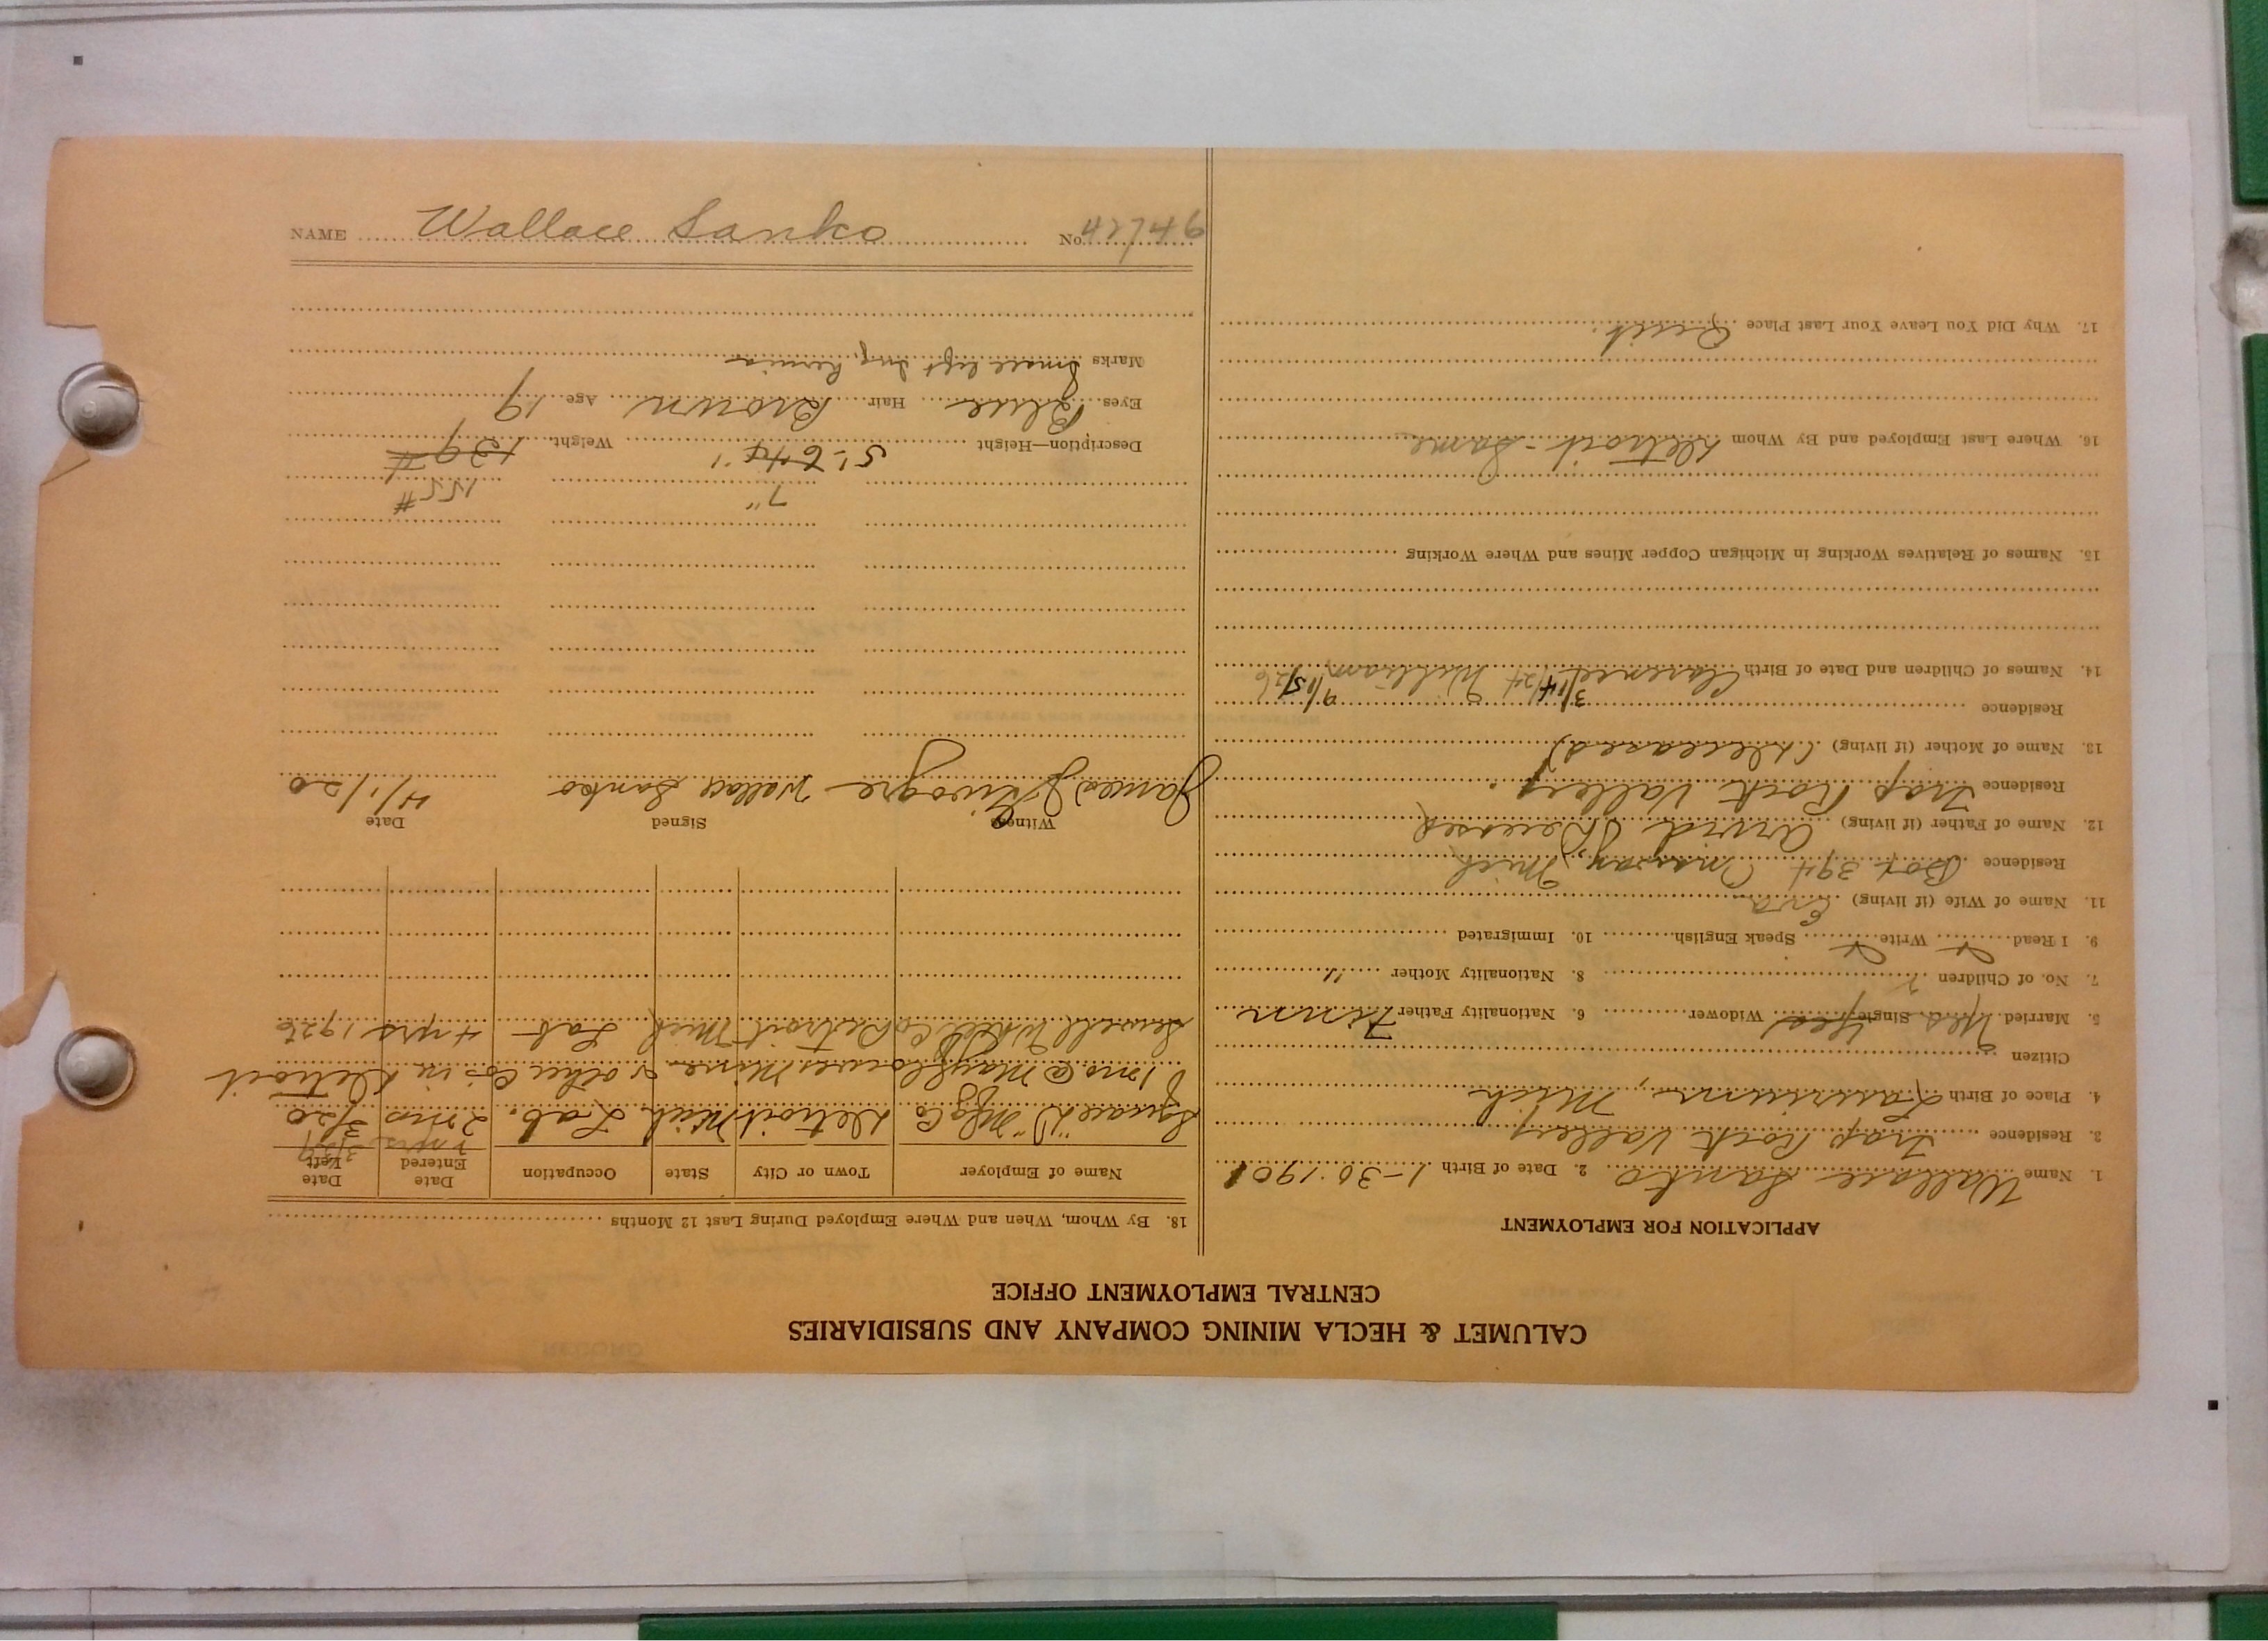 CALUMET & HECLA MINING COMPANY AND SUBSIDIARIES
CENTRAL EMPLOYMENT OFFICE
APPLICATION FOR EMPLOYMENT
1. Name Wallace Sanko 2. Date of Birth 1-30-1901
3. Residence Trap Rock Valley
4. Place of Birth Laurium, Mich
Citizen
5. Married Yes Single Yes Widower 6. Nationality Father Finn
7. No. of Children 2 8. Nationality Mother "
9. I Read Write Speak English 10. Immigrated
11. Name of Wife (if living) Eva
Residence Box 394 Mich
12. Name of Father (if living) Arvid (Deceased)
Residence Trap Rock Valley.
13. Name of Mother (if living) (Deceased)
Residence
14. Names of Children and Date of Birth Clarence 3/14/24 William 9/15/26
15. Names of Relatives Working in Michigan Copper Mines and Where Working
16. Where Last Employed and By Whom Detroit - Same
17. Why Did You Leave Your Last Place Quit.
18. By Whom, When and Where Employed During Last 12 Months
Name of Employer Town or City State Occupation Date Entered Date Left
Square "D" Mfg Co Detroit Mich Lab. 2 mos 3/20
1 mo @ Mayflower Mine & other Co's in Detroit
Detroit Mich Lab 4 yrs 1926
Witness Signed Date
James Wallace Sanko 4/1/20
7" 155 #
Description—Height 5'-6 Weight 139 #
Eyes Blue Hair Brown Age 19
Marks Small left Ing. hernia
NAME Wallace Sanko No. 42746